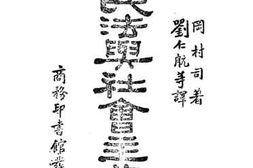 岡村司著
劉仁航等譯
民法與社會主
商務印書館